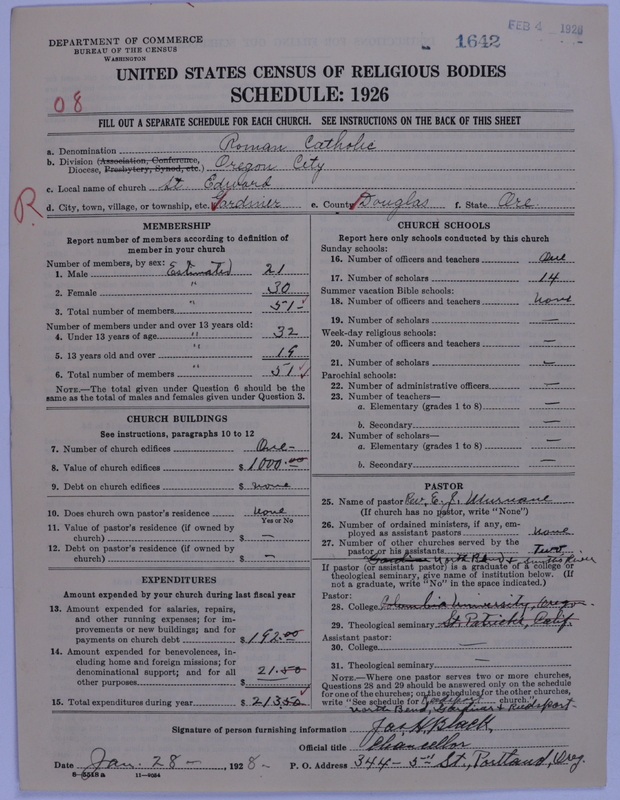 FEB 4 1928
1642
DEPARTMENT OF COMMERCE
BUREAU OF THE CENSUS
WASHINGTON
UNITED STATES CENSUS OF RELIGIOUS BODIES
SCHEDULE: 1926
08
FILL OUT A SEPARATE SCHEDULE FOR EACH CHURCH. SEE INSTRUCTIONS ON THE BACK OF THIS SHEET
a. Denomination Roman Catholic
b. Division (Association, Conference,
Diocese, Presbytery, Synod, etc.) Oregon City
c. Local name of church St Edward
R
d. City, town, village, or township, etc. Gardiner e. County Douglas f. State Ore.
MEMBERSHIP
Report number of members according to definition of
member in your church
Number of members, by sex:
1. Male Estimated 21
2. Female " 30
3. Total number of members " 51
Number of members under and over 13 years old:
4. Under 13 years of age " 32
5. 13 years old and over " 19
6. Total number of members " 51
NOTE.—The total given under Question 6 should be the
same as the total of males and females given under Question 3.
CHURCH BUILDINGS
See instructions, paragraphs 10 to 12
7. Number of church edifices One
8. Value of church edifices $ 1000.00
9. Debt on church edifices $ none
10. Does church own pastor's residence none
Yes or No
11. Value of pastor's residence (if owned by
church) $ —
12. Debt on pastor's residence (if owned by
church) $ —
EXPENDITURES
Amount expended by your church during last fiscal year
13. Amount expended for salaries, repairs,
and other running expenses; for im-
provements or new buildings; and for
payments on church debt $ 192.00
14. Amount expended for benevolences, in-
cluding home and foreign missions; for
denominational support; and for all
other purposes $ 21.50
15. Total expenditures during year $ 213.50
CHURCH SCHOOLS
Report here only schools conducted by this church
Sunday schools:
16. Number of officers and teachers One
17. Number of scholars 14
Summer vacation Bible schools:
18. Number of officers and teachers none
19. Number of scholars —
Week-day religious schools:
20. Number of officers and teachers —
21. Number of scholars —
Parochial schools:
22. Number of administrative officers —
23. Number of teachers—
a. Elementary (grades 1 to 8) —
b. Secondary —
24. Number of scholars—
a. Elementary (grades 1 to 8) —
b. Secondary —
PASTOR
25. Name of pastor Rev. E. J. Murnane
(If church has no pastor, write "None")
26. Number of ordained ministers, if any, em-
ployed as assistant pastors none
27. Number of other churches served by the
pastor or his assistants Two
Gardiner North Bend & Smiths River
If pastor (or assistant pastor) is a graduate of a college or
theological seminary, give name of institution below. (If
not a graduate, write "No" in the space indicated.)
Pastor:
28. College Columbia University, Oregon
29. Theological seminary St. Patricks, Calif.
Assistant pastor:
30. College —
31. Theological seminary —
NOTE.—Where one pastor serves two or more churches,
Questions 28 and 29 should be answered only on the schedule
for one of the churches; on the schedules for the other churches,
write "See schedule for Reedsport church."
North Bend, Gardiner & Reedsport
Signature of person furnishing information Jas H Black
Official title Chancellor
Date Jan. 28 - , 1928 P. O. Address 344 - 5th St., Portland, Oreg.
8—3518a 11—9064